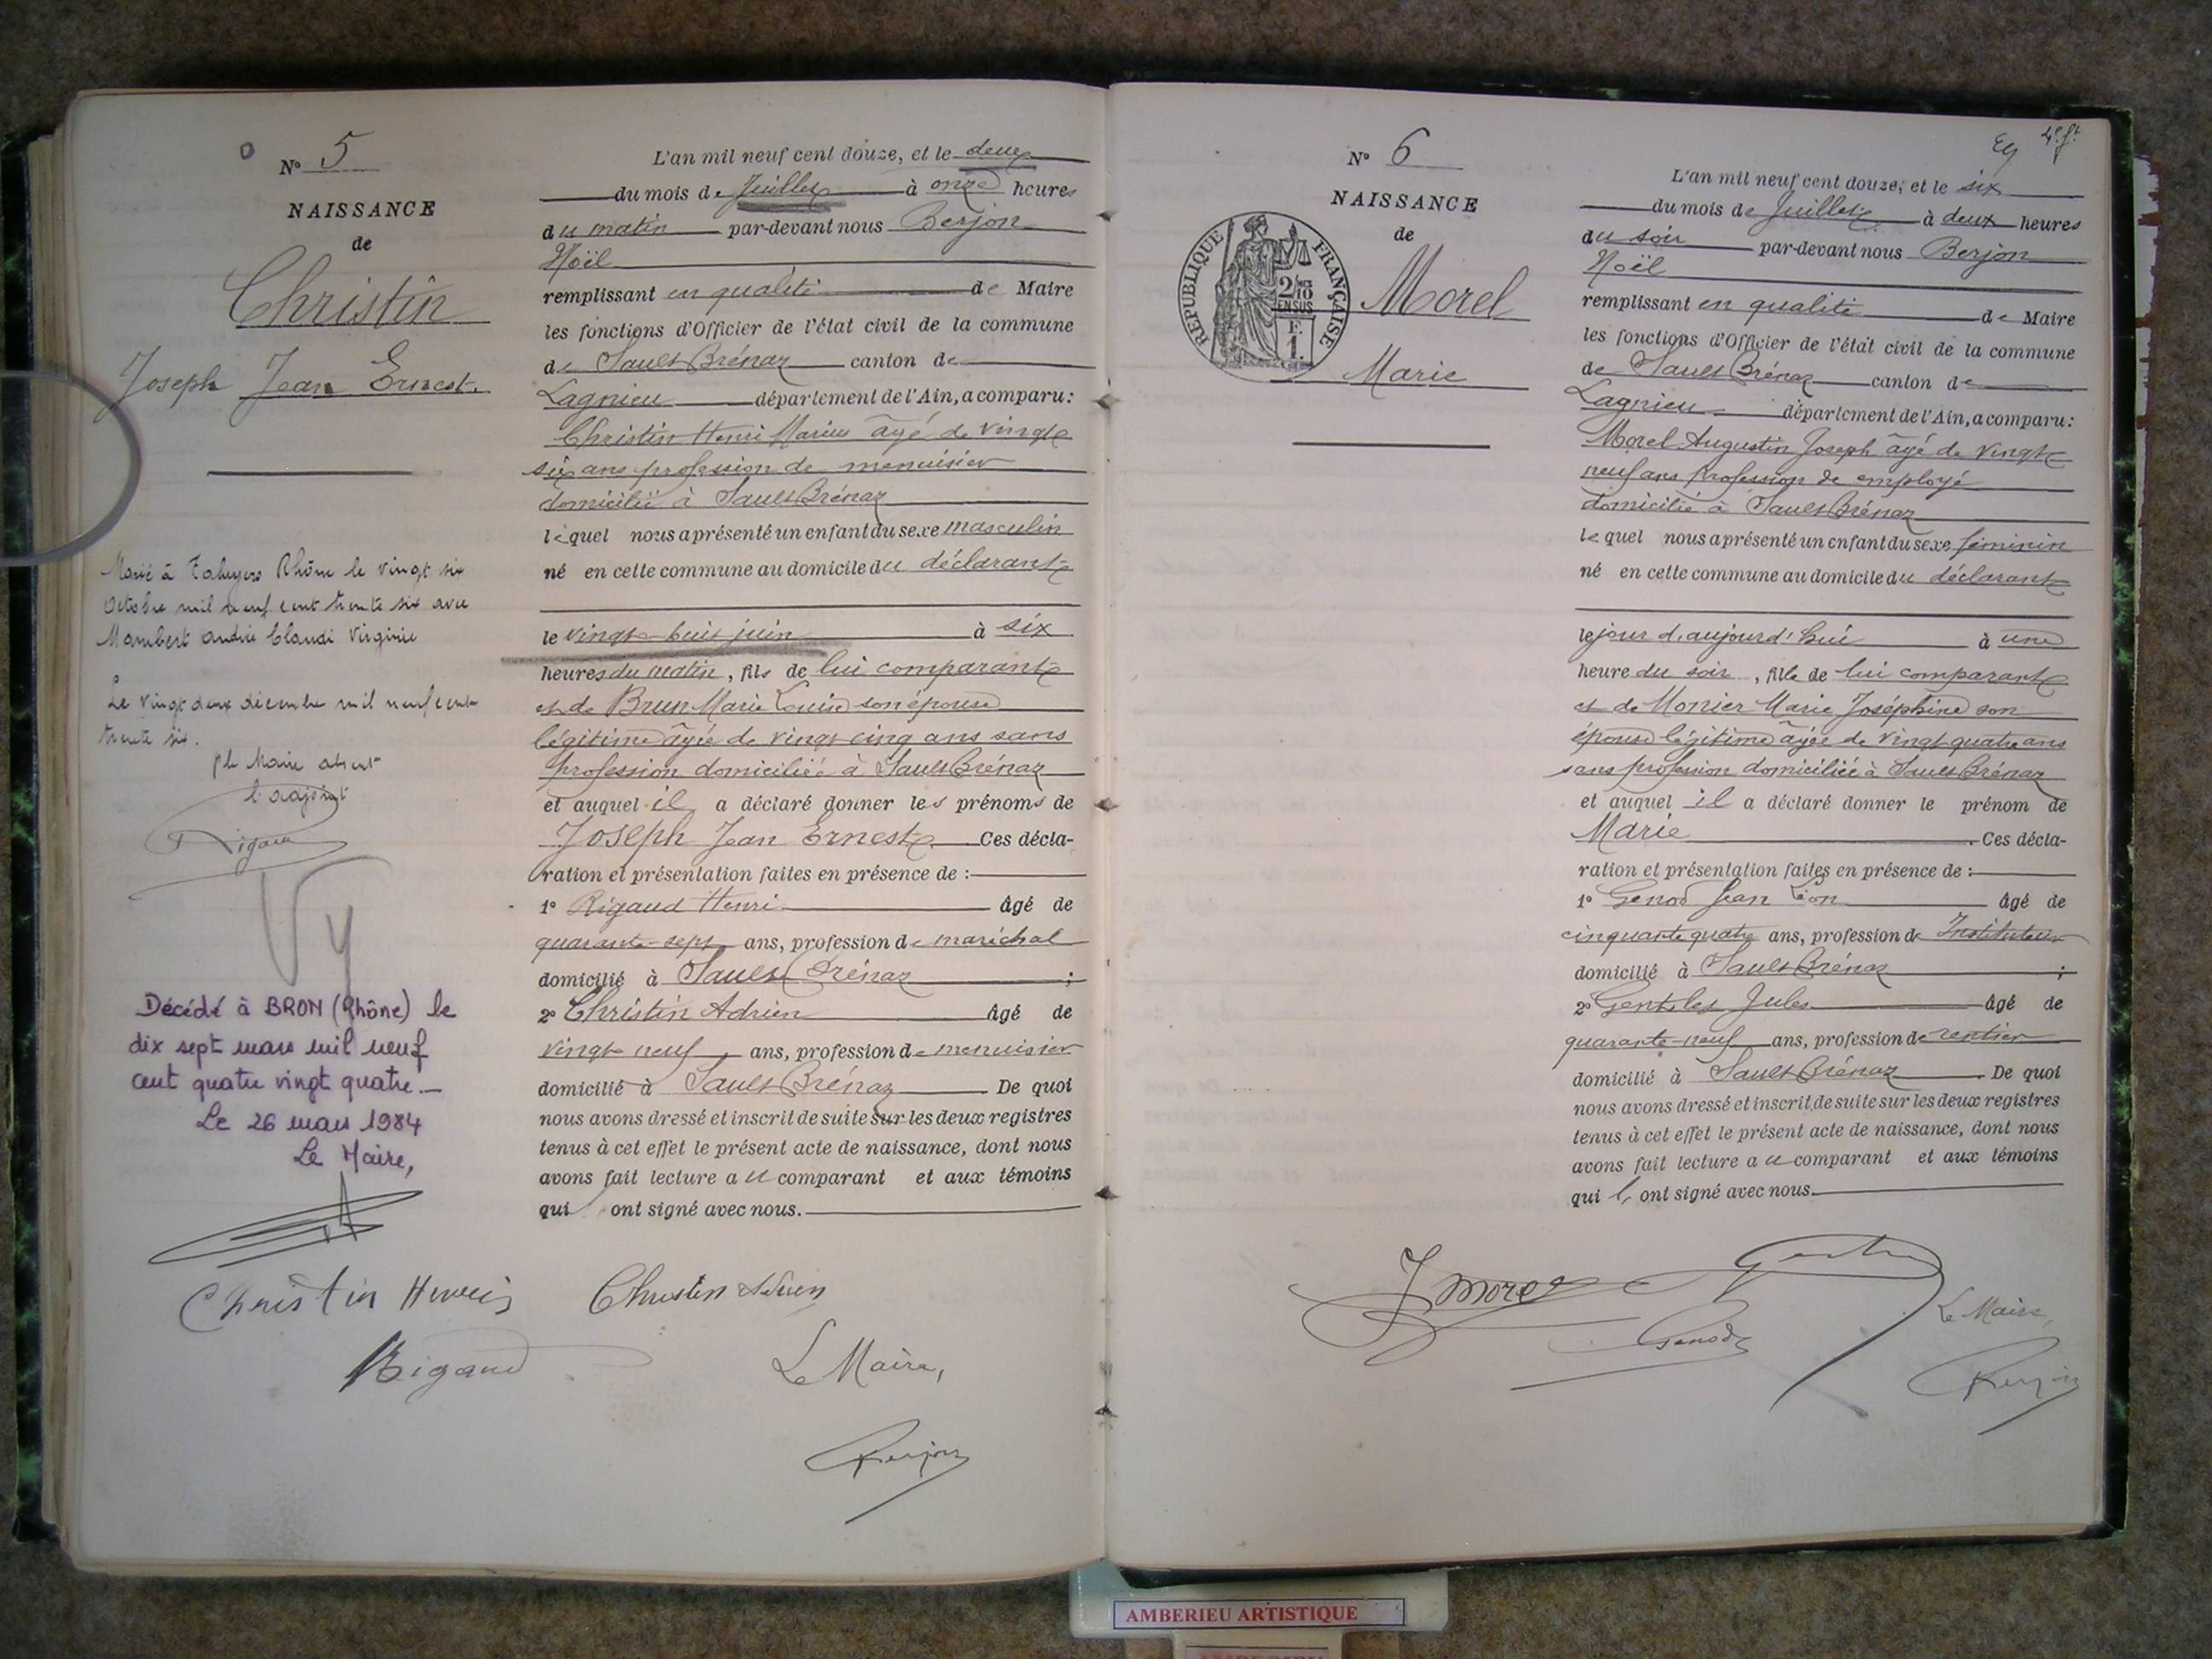 N° 5
NAISSANCE
de
Christin
Joseph Jean Ernest.
Marié à Rhône le vingt six
Octobre mil neuf cent trente six avec
Mambert andrée Claudi Virginie
Le vingt deux décembre mil neuf cent
trente six.
pr le Maire absent
l'adjoint
Rigaud
Vy
Décédé à BRON (Rhône) le
dix sept mars mil neuf
cent quatre vingt quatre._
Le 26 mars 1984
Le Maire,
L'an mil neuf cent douze, et le deux
du mois de Juillet à onze heures
du matin par-devant nous Berjon
Noël
remplissant en qualité de Maire
les fonctions d'Officier de l'état civil de la commune
de Sault Brénaz canton de
Lagnieu département de l'Ain, a comparu:
Christin Henri Marius âgé de vingt
six ans profession de menuisier
domicilié à Sault Brénaz
lequel nous a présenté un enfant du sexe masculin
né en cette commune au domicile du déclarant
le vingt-huit juin à six
heures du matin, fils de lui comparant
et de Brun Marie Louise son épouse
légitime âgée de vingt cinq ans sans
profession domiciliée à Sault Brénaz
et auquel il a déclaré donner les prénoms de
Joseph Jean Ernest Ces décla-
ration et présentation faites en présence de :
1° Rigaud Henri âgé de
quarante-sept ans, profession de maréchal
domicilié à Sault Brénaz ;
2° Christin Adrien âgé de
vingt neuf ans, profession de menuisier
domicilié à Sault Brénaz De quoi
nous avons dressé et inscrit de suite sur les deux registres
tenus à cet effet le présent acte de naissance, dont nous
avons fait lecture au comparant et aux témoins
qui ont signé avec nous.
Christin Henri Christin Adrien
Rigaud Le Maire,
Berjon
4e ft
N° 6
NAISSANCE
de
RÉPUBLIQUE FRANÇAISE
2/10
EN SUS
F.
1.
Morel
Marie
L'an mil neuf cent douze, et le six
du mois de Juillet à deux heures
du soir par-devant nous Berjon
Noël
remplissant en qualité de Maire
les fonctions d'Officier de l'état civil de la commune
de Sault Brénaz canton de
Lagnieu département de l'Ain, a comparu:
Morel Augustin Joseph âgé de vingt
neuf ans profession de employé
domicilié à Sault Brénaz
lequel nous a présenté un enfant du sexe féminin
né en cette commune au domicile du déclarant
le jour d'aujourd'hui à une
heure du soir, fille de lui comparant
et de Monier Marie Joséphine son
épouse légitime âgée de vingt quatre ans
sans profession domiciliée à Sault Brénaz
et auquel il a déclaré donner le prénom de
Marie Ces décla-
ration et présentation faites en présence de :
1° Genod Jean Léon âgé de
cinquante quatre ans, profession de Instituteur
domicilié à Sault Brénaz ;
2° Gentiles Jules âgé de
quarante-neuf ans, profession de rentier
domicilié à Sault Brénaz De quoi
nous avons dressé et inscrit de suite sur les deux registres
tenus à cet effet le présent acte de naissance, dont nous
avons fait lecture au comparant et aux témoins
qui ont signé avec nous.
J Morel
Genod
Le Maire,
Berjon
AMBERIEU ARTISTIQUE